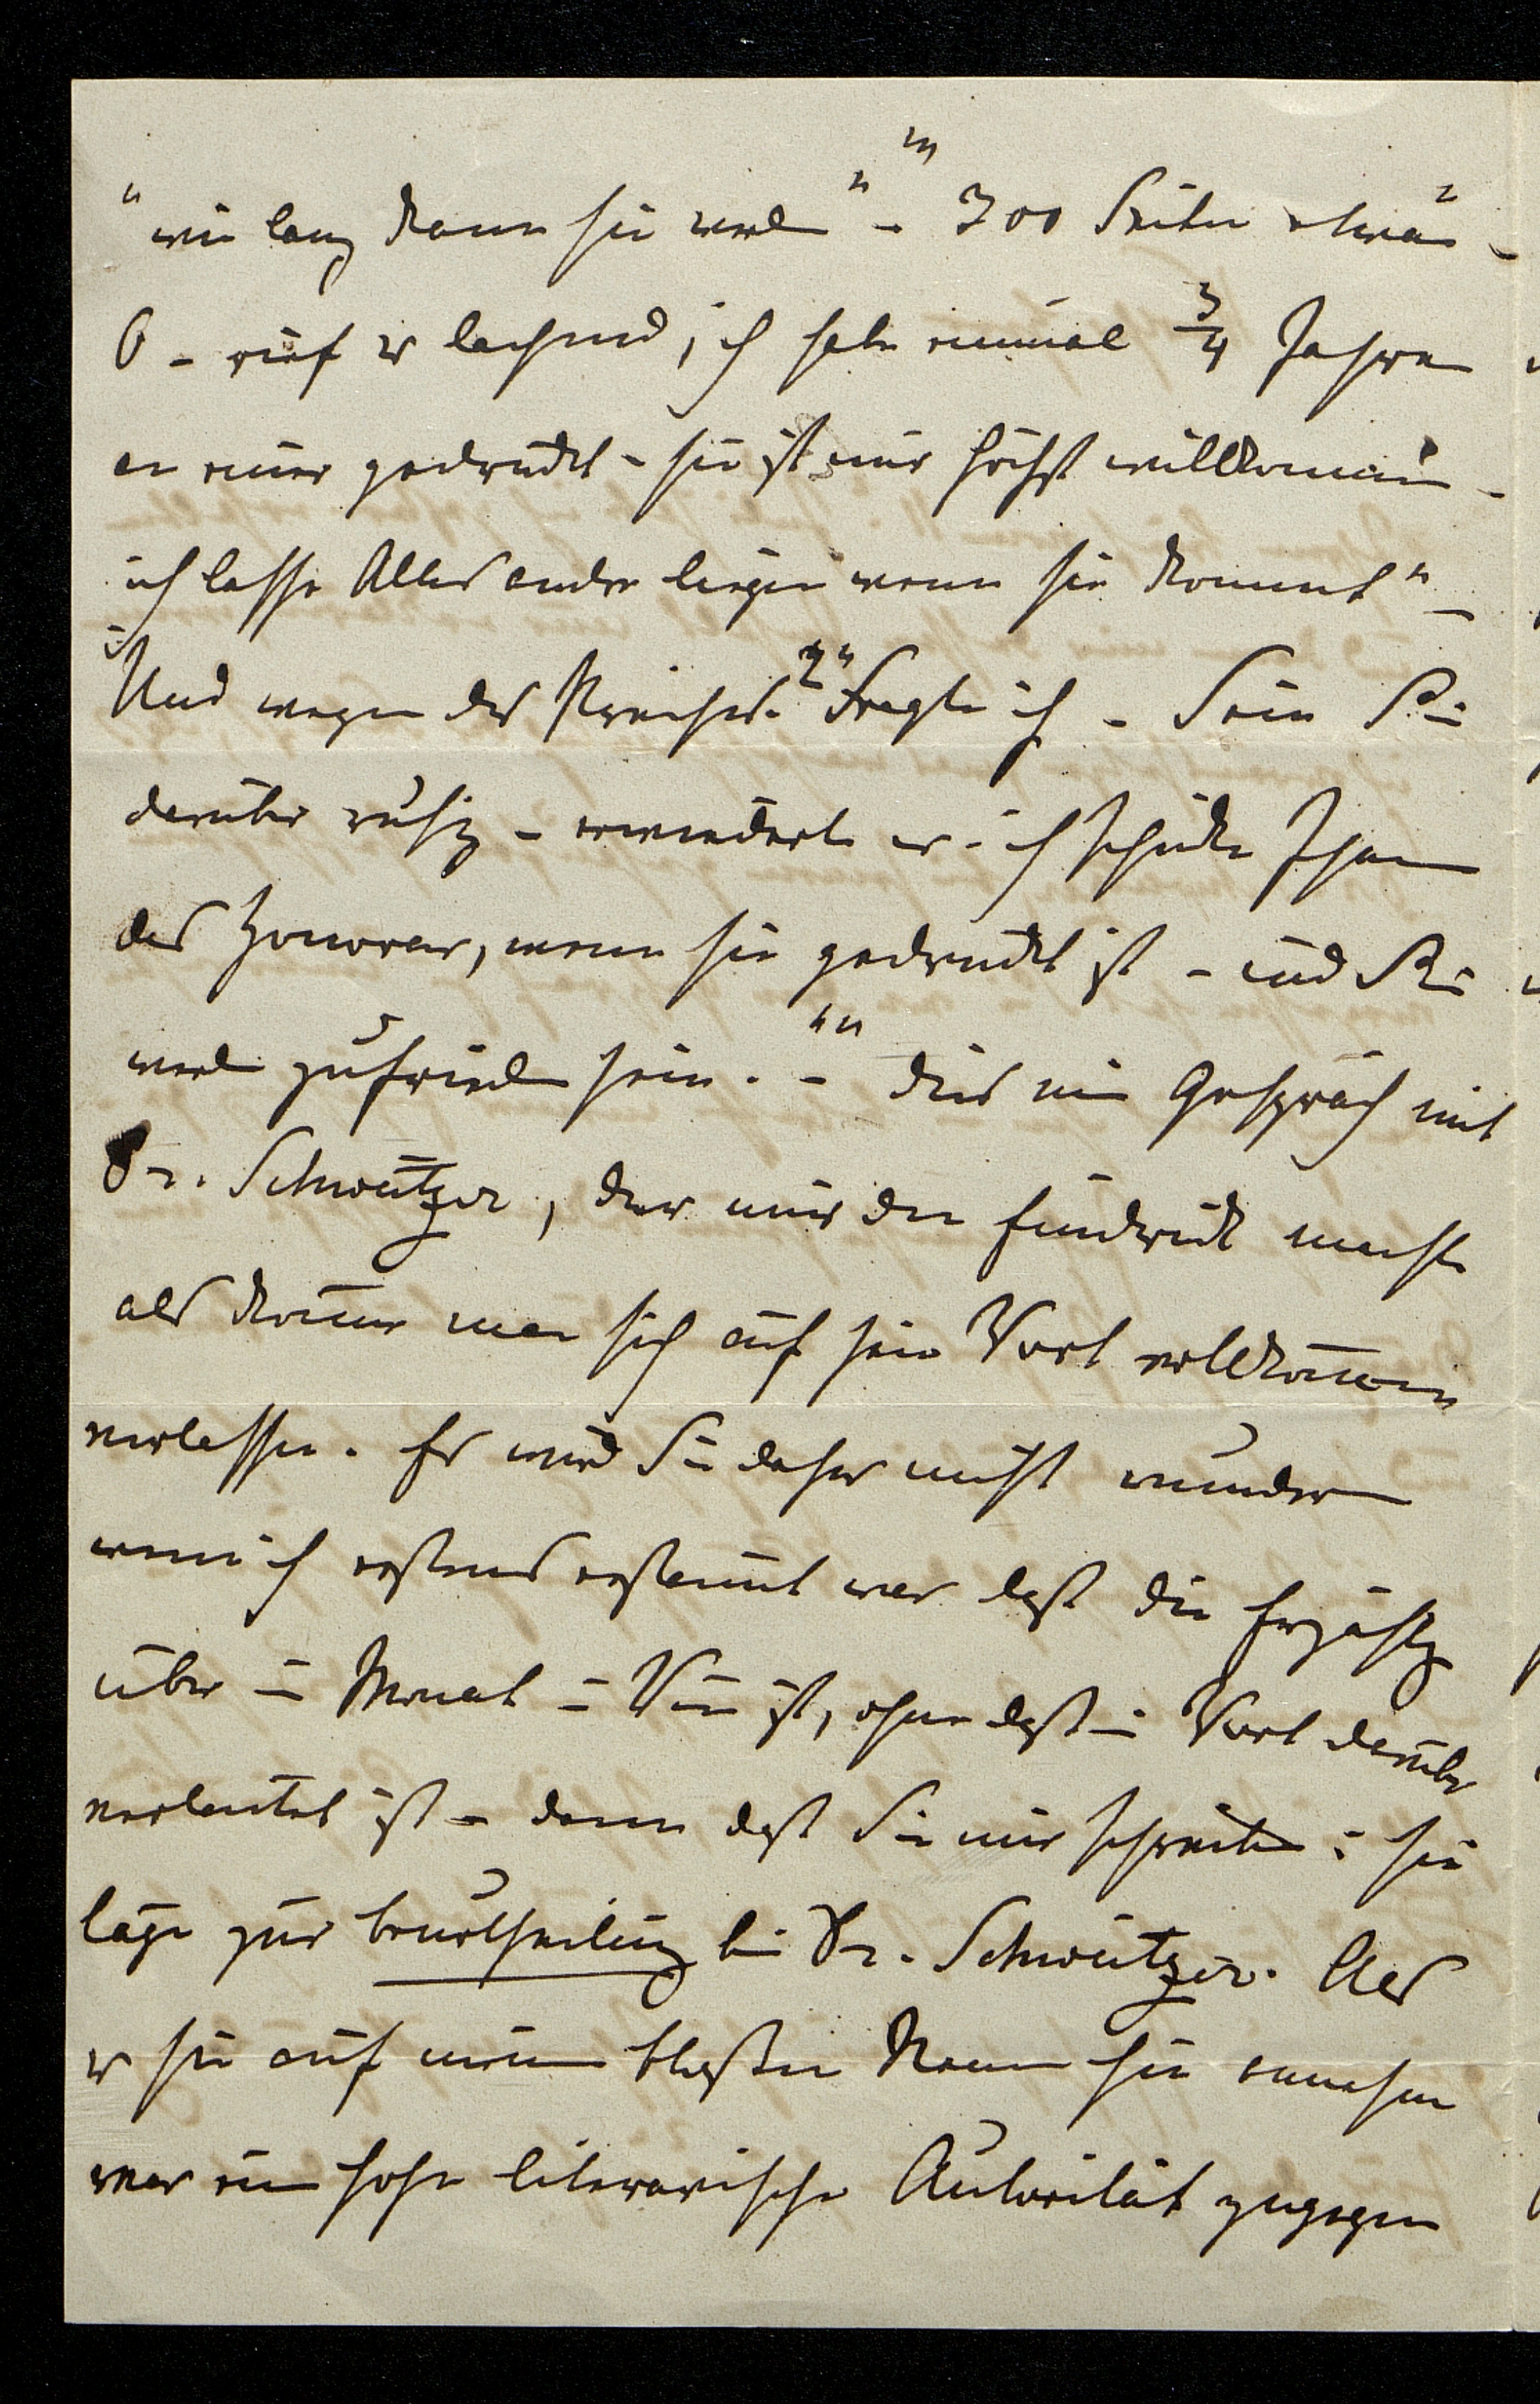 "wie lang kann sie werden" - "300 Seiten etwa" -
O - rief er lachend, ich habe einmal 3/4 Jahre
an einer gedruckt - sie ist mir höchst willkommen -
ich lasse Alles andre liegen wenn sie kommt" -
"Und wegen des Preises?" Fragte ich - Sein Sie
darüber ruhig - erwiederte er - ich schicke Ihnen
das Honorar, wenn sie gedruckt ist - und Sie
werden zufrieden sein." - dies mein Gespräch mit
Dr. Schweitzer, der mir den Eindruck machte
als könne man sich auf sein Wort vollkommen
verlassen. Es wird Sie daher nicht wundern
wenn ich erstens erstaunt war daß die Erzählg
über ein Monat in Wien ist, ohne daß ein Wort darüber
verlautet ist - dann daß Sie mir schreiben: sie
läge zur Beurtheilung bei Dr. Schweitzer. Als
er sie auf meinen bloßen Namen hin annahm
war eine hohe literarische Autorität zugegen